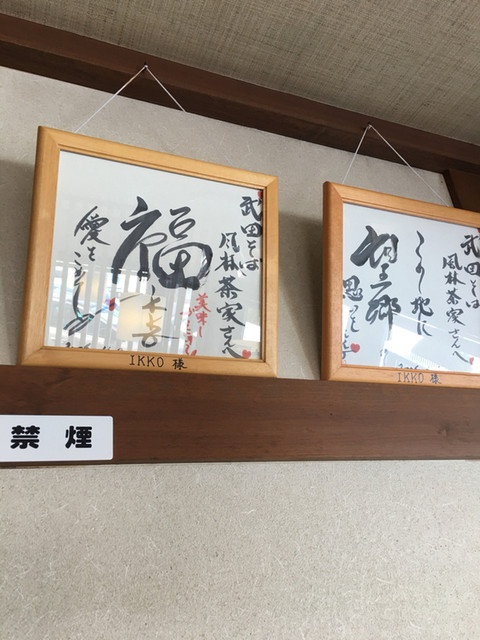 武田そば
風林茶家さんへ
福
愛をこめて
美味し
IKKO 様
武田そば
風林茶家さんへ
この地に
望郷
思って
IKKO 様
禁煙